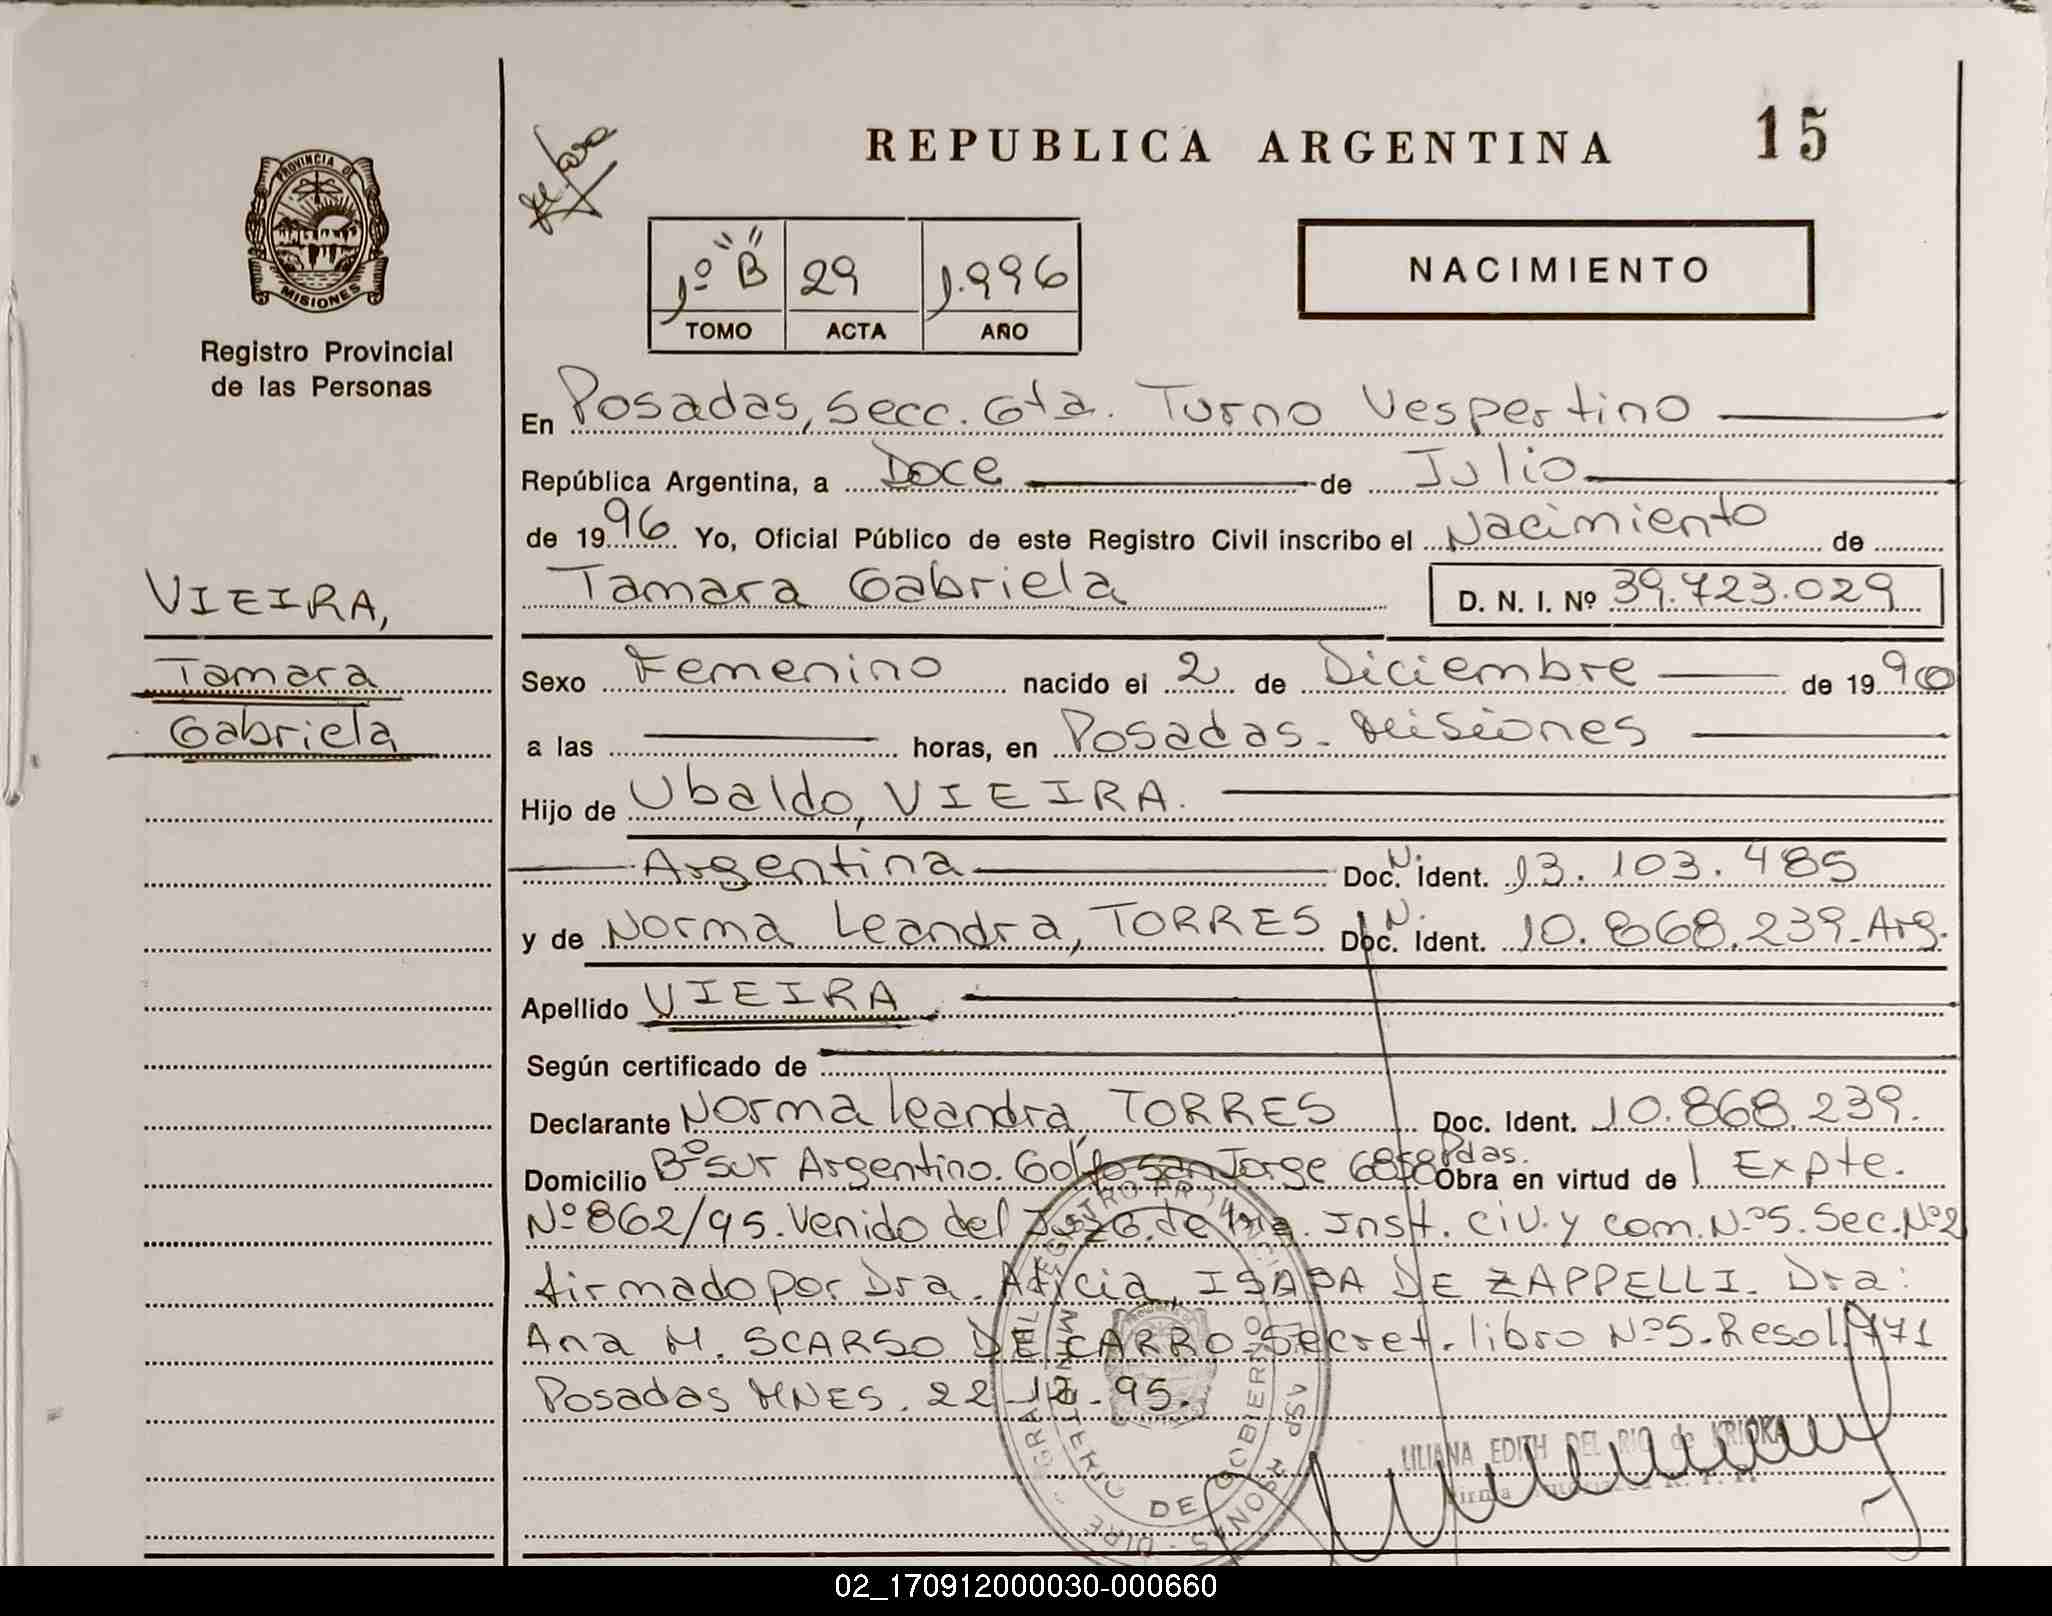 REPUBLICA ARGENTINA
15
PROVINCIA DE
MISIONES
Registro Provincial
de las Personas
1º "B" 29 1.996
TOMO ACTA AÑO
NACIMIENTO
En Posadas, Secc. 6ta. Turno Vespertino
República Argentina, a Doce de Julio
de 1996 Yo, Oficial Público de este Registro Civil inscribo el Nacimiento de
Tamara Gabriela D. N. I. Nº 39.723.029
VIEIRA,
Tamara
Gabriela
Sexo Femenino nacido el 2 de Diciembre de 1990
a las horas, en Posadas - Misiones
Hijo de Ubaldo, VIEIRA.
Argentina Doc. N. Ident. 13.103.485
y de Norma Leandra, TORRES Doc. N. Ident. 10.868.239-Arg.
Apellido VIEIRA
Según certificado de
Declarante Norma Leandra, TORRES Doc. Ident. 10.868.239.
Domicilio Bº Sur Argentino. Golfo San Jorge 6858 Pdas. Obra en virtud de 1 Expte.
Nº 862/95. Venido del Juzg. de 1ra. Inst. Civ. y Com. Nº 5. Sec. Nº 2
firmado por Dra. Alicia, ISASA DE ZAPPELLI. Dra:
Ana M. SCARSO DE CARRO - Secret. libro Nº 5. Resol. 771
Posadas MNES. 22-12-95.
LILIANA EDITH DEL RIO de KRIOKA
MINISTERIO DE GOBIERNO
02_170912000030-000660